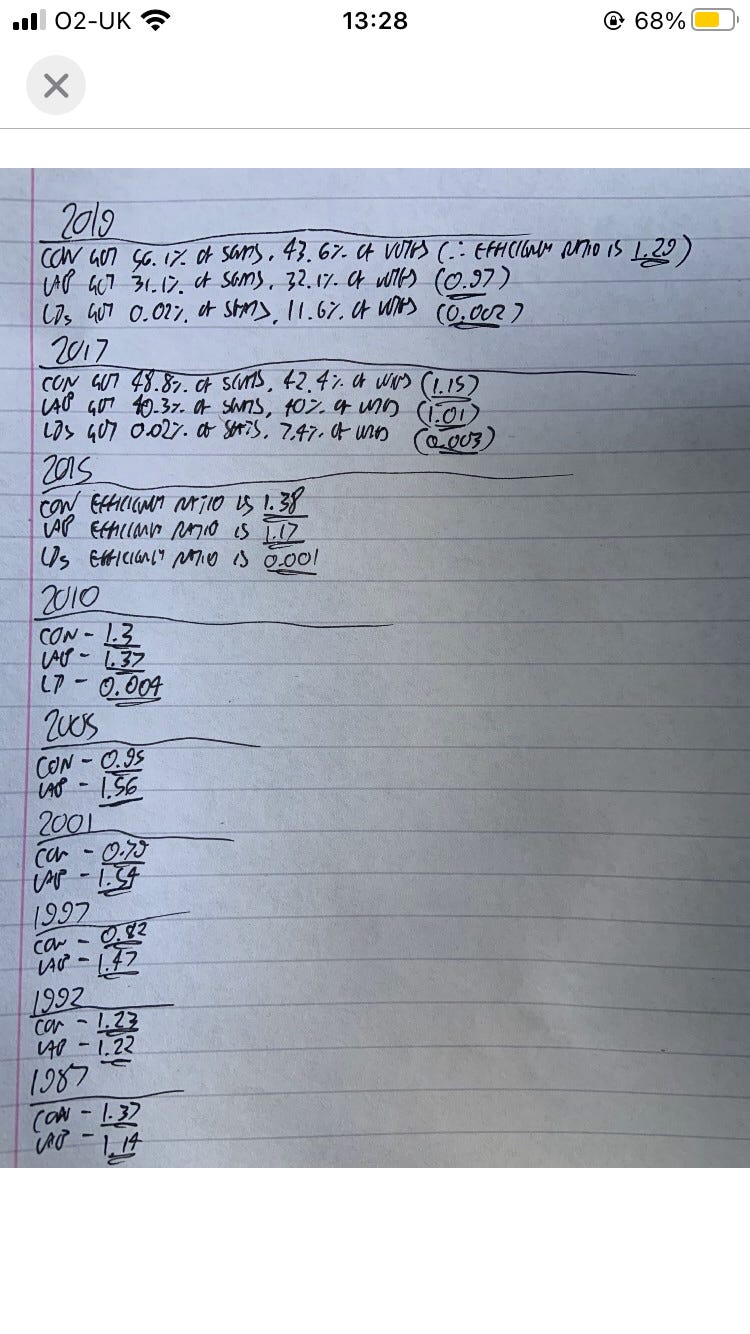 O2-UK 13:28 68%
2019
CON GOT 56.1% OF SEATS, 43.6% OF VOTES (∴ EFFICIENCY RATIO IS 1.29)
LAB GOT 31.1% OF SEATS, 32.1% OF VOTES (0.97)
LDs GOT 0.02% OF SEATS, 11.6% OF VOTES (0.002)
2017
CON GOT 48.8% OF SEATS, 42.4% OF VOTES (1.15)
LAB GOT 40.3% OF SEATS, 40% OF VOTES (1.01)
LDs GOT 0.02% OF SEATS, 7.4% OF VOTES (0.003)
2015
CON EFFICIENCY RATIO IS 1.38
LAB EFFICIENCY RATIO IS 1.17
LDs EFFICIENCY RATIO IS 0.001
2010
CON - 1.3
LAB - 1.37
LD - 0.004
2005
CON - 0.95
LAB - 1.56
2001
CON - 0.79
LAB - 1.54
1997
CON - 0.82
LAB - 1.47
1992
CON - 1.23
LAB - 1.22
1987
CON - 1.37
LAB - 1.14